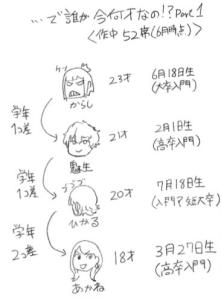 …で誰が今何才なの!? Part.1
<作中52席(6月時点)>
からし
23才
6月18日生
(大卒入門)
学年
1コ差
21才
2月1日生
(高卒入門)
学年
1コ差
ひかる
20才
7月18日生
(入門?短大卒)
学年
2コ差
あかね
18才
3月27日生
(高卒入門)